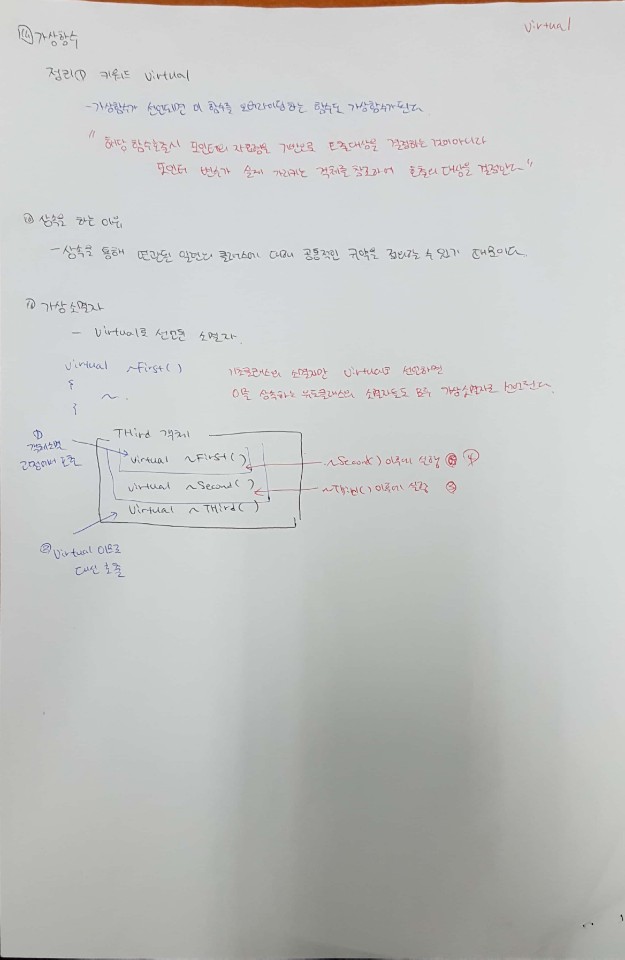 virtual
⑭ 가상함수
정리① 키워드 virtual
-가상함수가 선언되면 이 함수를 오버라이딩하는 함수도 가상함수가된다.
"해당 함수호출시 포인터의 자료형을 기반으로 호출대상을 결정하는 것이아니라
포인터 변수가 실제 가리키는 객체를 참조하여 호출의 대상을 결정한다"
상속을 하는 이유
- 상속을 통해 연관된 일련의 클래스에 대해 공통적인 규약을 정의할 수 있기 때문이다.
가상소멸자
- virtual로 선언된 소멸자.
virtual ~First()
{
~.
}
기초클래스의 소멸자만 virtual로 선언하면
이를 상속하는 유도클래스의 소멸자들도 모두 가상소멸자로 선언된다.
THird 객체
① 객체소멸
과정에서 호출
virtual ~First()
~Second() 이후에 실행 ④
virtual ~Second()
~THird() 이후에 실행 ③
virtual ~THird()
② virtual 이므로
대신 호출